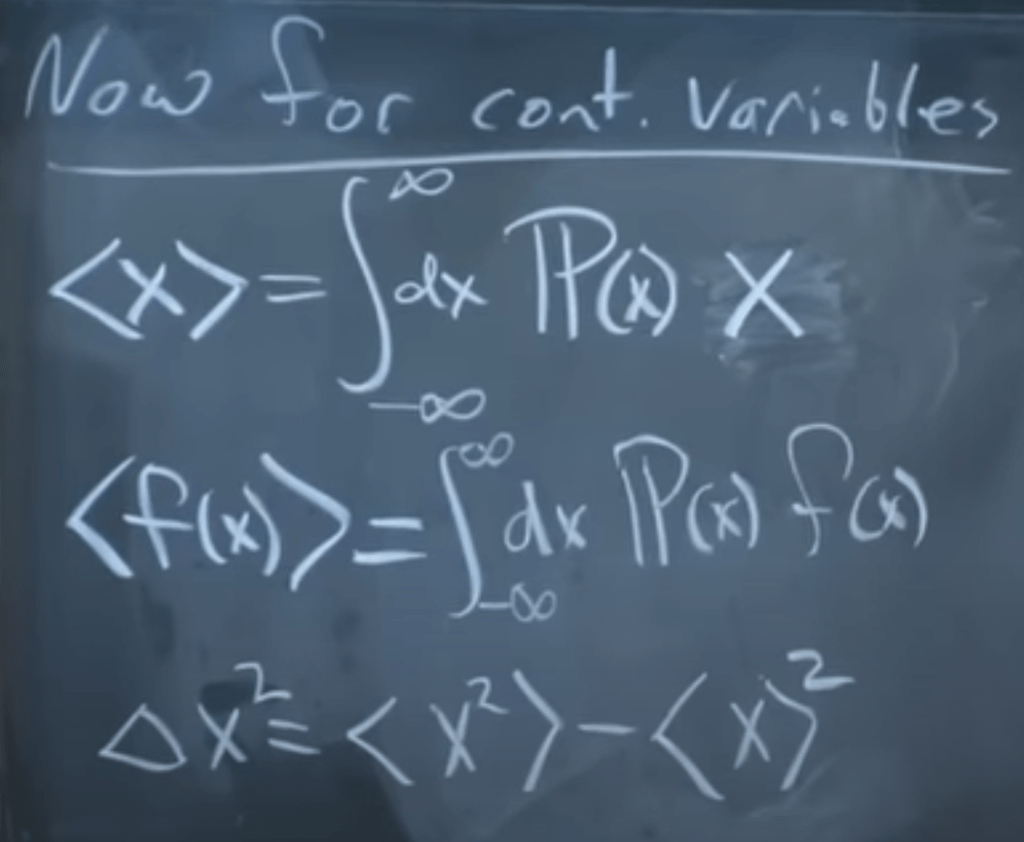 Now for cont. variables
<x> = ∫_{-∞}^{∞} dx ℙ(x) x
<f(x)> = ∫_{-∞}^{∞} dx ℙ(x) f(x)
Δx² = <x²> - <x>²